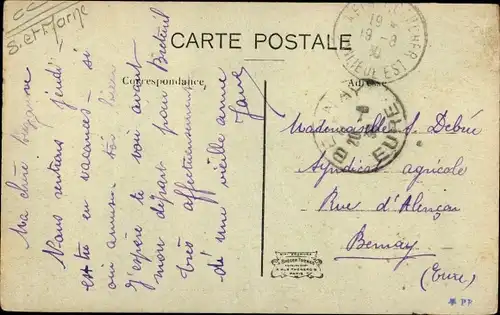 S.et.Marne
CARTE POSTALE
Correspondance
Adresse
Ma chère Suzanne
Nous rentrons jeudi
es-tu en vacances - si
oui amuse toi bien
J'espère te voir avant
mon départ pour Breteuil
très affectueusement
de une vieille amie
Jane
Mademoiselle S. Debüe
Syndicat agricole
Rue d'Alençon
Bernay
(Eure)
19
19-8
30
EURE
PARIS
PP